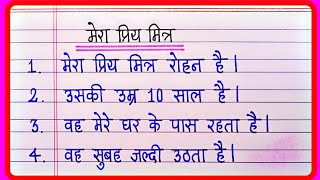 मेरा प्रिय मित्र
1. मेरा प्रिय मित्र रोहन है।
2. उसकी उम्र 10 साल है।
3. वह मेरे घर के पास रहता है।
4. वह सुबह जल्दी उठता है।